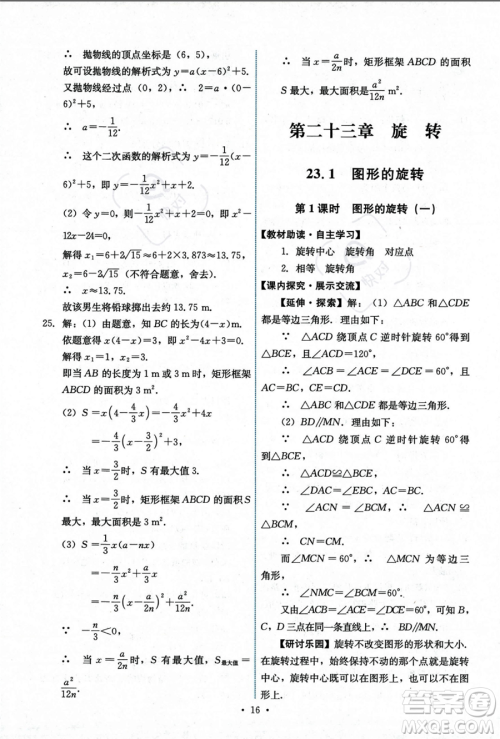 ∴ 抛物线的顶点坐标是（6，5），
故可设抛物线的解析式为 y=a(x-6)²+5.
又抛物线经过点（0，2），∴ 2·a(-6)²+5,
∴ a=-1/12.
∴ 这个二次函数的解析式为 y=-1/12(x-6)²+5,
即 y=-1/12x²+x+2.
（2）令 y=0，即-1/12x²+x+2=0，得 x²-
12x-24=0,
解得 x₁=6+2√15≈6+2×3.873≈13.75,
x₂=6-2√15（不符合题意，舍去）.
∴ x≈13.75.
故该男生将铅球掷出去约 13.75 m.
25. 解：（1）由题意，知 BC 的长为（4-x）m.
依题意得 x(4-x)=3，即 x²-4x+3=0,
解得 x₁=1，x₂=3.
即当 AB 的长度为 1 m 或 3 m 时，矩形框架
ABCD 的面积为 3 m².
（2）S=x(4-4/3x)=-4/3x²+4x
=-4/3(x-3/2)²+3,
∴ 当 x=3/2 时，S 有最大值 3.
∴ 当 x=3/2 时，矩形框架 ABCD 的面积 S
最大，最大面积为 3 m².
（3）S=1/3x(a-nx)
=-n/3x²+a/3x
=-n/3(x-a/2n)²+a²/12n,
∵ -n/3<0,
∴ 当 x=a/2n 时，S 有最大值，S最大值=
a²/12n.
∴ 当 x=a/2n 时，矩形框架 ABCD 的面积
S 最大，最大面积为 a²/12n m².
第二十三章 旋 转
23.1 图形的旋转
第 1 课时 图形的旋转（一）
【教材助读·自主学习】
1. 旋转中心 旋转角 对应点
2. 相等 旋转角
【课内探究·展示交流】
【延伸·探索】（1）∵ △ABC 和△CDE
都是等边三角形，
∴ △ACD 绕顶点 C 逆时针旋转 60°得到
△BCE,
且∠ACD=∠BCE=120°,
∵ △ABC 和△CDE 都是等边三角形，
∴
（2）BD//MN. ∵ △ACD 绕顶点 C 逆时
针旋转 60°得到△BCE,
∵ △ACD 绕顶点 C 逆时针旋转 60°得到
△BCE,
∴ △ACD≌△BCE，∴ ∠DAC=∠EBC.
又∵ AC=BC，∠ACN=∠BCM=60°,
∴ △ACN 绕顶点 C 逆时针旋转 60°得到
△BCM,
∴ CN=CM.
而∠MCN=60°，∴ △MCN 为等边三
角形，
∴ ∠MNC=60°.
又由（1）可知∠DCE=60°，且点 A，C，E
三点共在同一条直线上，
∴ BD//MN.
【研讨乐园】旋转不改变图形的形状和大小.
在旋转过程中，旋转中心可以在图形上，也可以不
在图形上.
· 16 ·